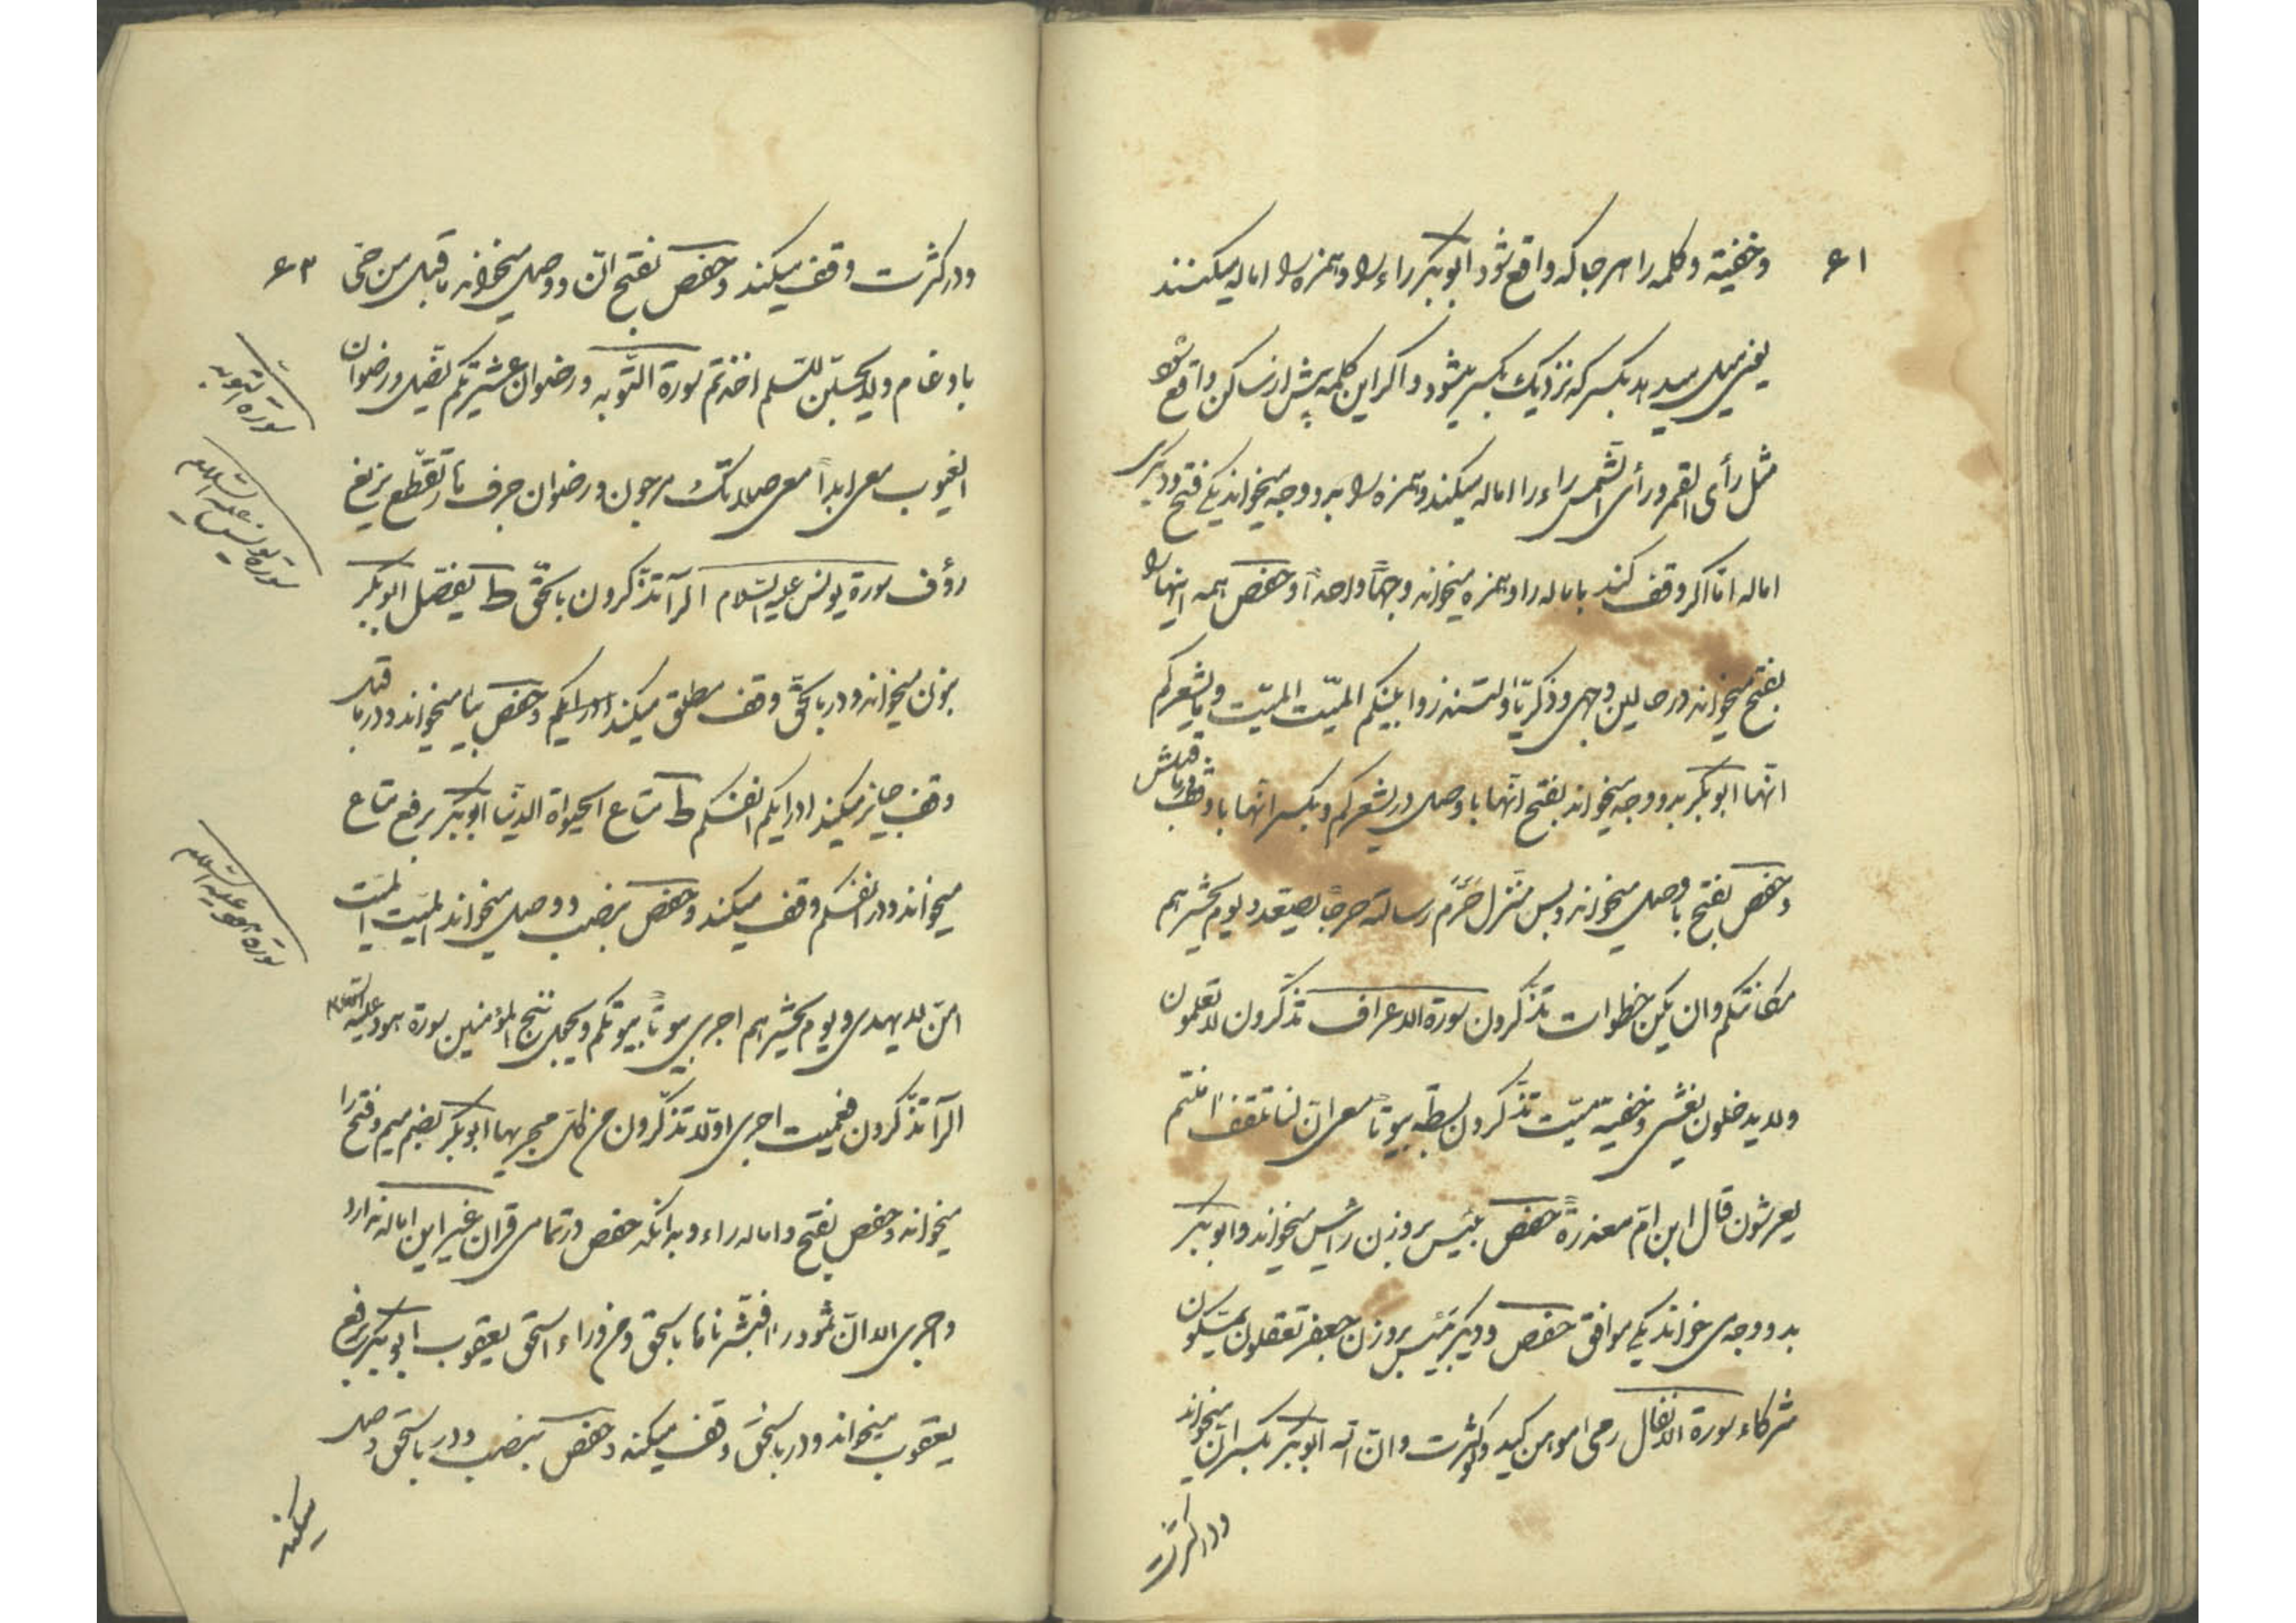 ۶۱
وخفیته و کلمه را هر جا که واقع شود ابوبکر راء را و همزه را اماله میکنند
یعنی میل میدهد بکسر که نزدیک بکسر میشود و اگر این کلمه پیش از ساکن واقع شود
مثل رأی القمر و رأی الشمس راء را اماله میکند و همزه را بدو وجه میخواند یکی فتح و دیگری
اماله اما اگر وقف کند باماله را و همزه میخواند وجهاً واحداً و حفص همه اینها را
بفتح میخواند در حالین وجهی و ذکریّا ولتنذروا بینکم المیّت المیّت و یشعرکم
انّها ابوبکر بدو وجه میخواند بفتح انّها با وصل در یشعرکم و بکسر انّها با وقف در ماقبلش
و حفص بفتح با وصل میخواند و بس منزل حرّم رسالته حرجاً یصّعّد و یوم یحشرهم
مکانتکم وان یکن خطوات تذکّرون سورة الاعراف تذکّرون لا تعلمون
ولا یدخلون یغشی وخفیته میّت تذکّرون بسطة بیوتاً معی انّ لنا تلقف اامنتم
یعرشون قال ابن امّ معذرةً حفص بئیس بر وزن رئیس میخواند و ابوبکر
بدو وجه می خواند یکی موافق حفص و دیگر بیئس بر وزن جعفر تعقلون یمسکون
شرکاء سورة الانفال رمی موهن کید و کثرت وانّ الله ابوبکر بکسر انّ میخواند
و در کثرت
و در کثرت وقف میکند و حفص بفتح انّ و وصل میخواند ماقبل من حیّ
بادغام ولا یحسبنّ للسّلم اخذتم سورة التوبه ورضوان عشیرتکم یضلّ ورضوان
الغیوب معی ابداً معی صلاتک مرجون ورضوان جرف تقطّع یزیغ
رؤف سورة یونس علیه السلام الرآ تذکّرون بالحقّ ط یفصّل ابوبکر
بنون میخواند و در بالحقّ وقف مطلق میکند ادریکم و حفص بیا میخواند و در ماقبل
وقف جایز میکند ادریکم انفسکم ط متاع الحیوة الدنیا ابوبکر برفع متاع
میخواند و در انفسکم وقف میکند و حفص بنصب و وصل میخواند المیّت المیّت
امّن لا یهدی و یوم یحشرهم اجری بیوتاً بیوتکم و یجعل ننج المؤمنین سورة هود علیه السلام
الرآ تذکّرون فعمیت اجری اولا تذکّرون من کلّ مجریها ابوبکر بضم میم و فتح را
میخواند و حفص بفتح و اماله راء و بدانکه حفص در تمامی قرآن غیر این اماله ندارد
و اجری الا انّ ثمود رأ فبشّرناها باسحق ومن وراء اسحق یعقوب ابوبکر برفع
یعقوب میخواند و در باسحق وقف میکند و حفص بنصب و در باسحق وصل
میکند
۶۳
سورة توبه
سورة یونس علیه السلام
سورة هود علیه السلام